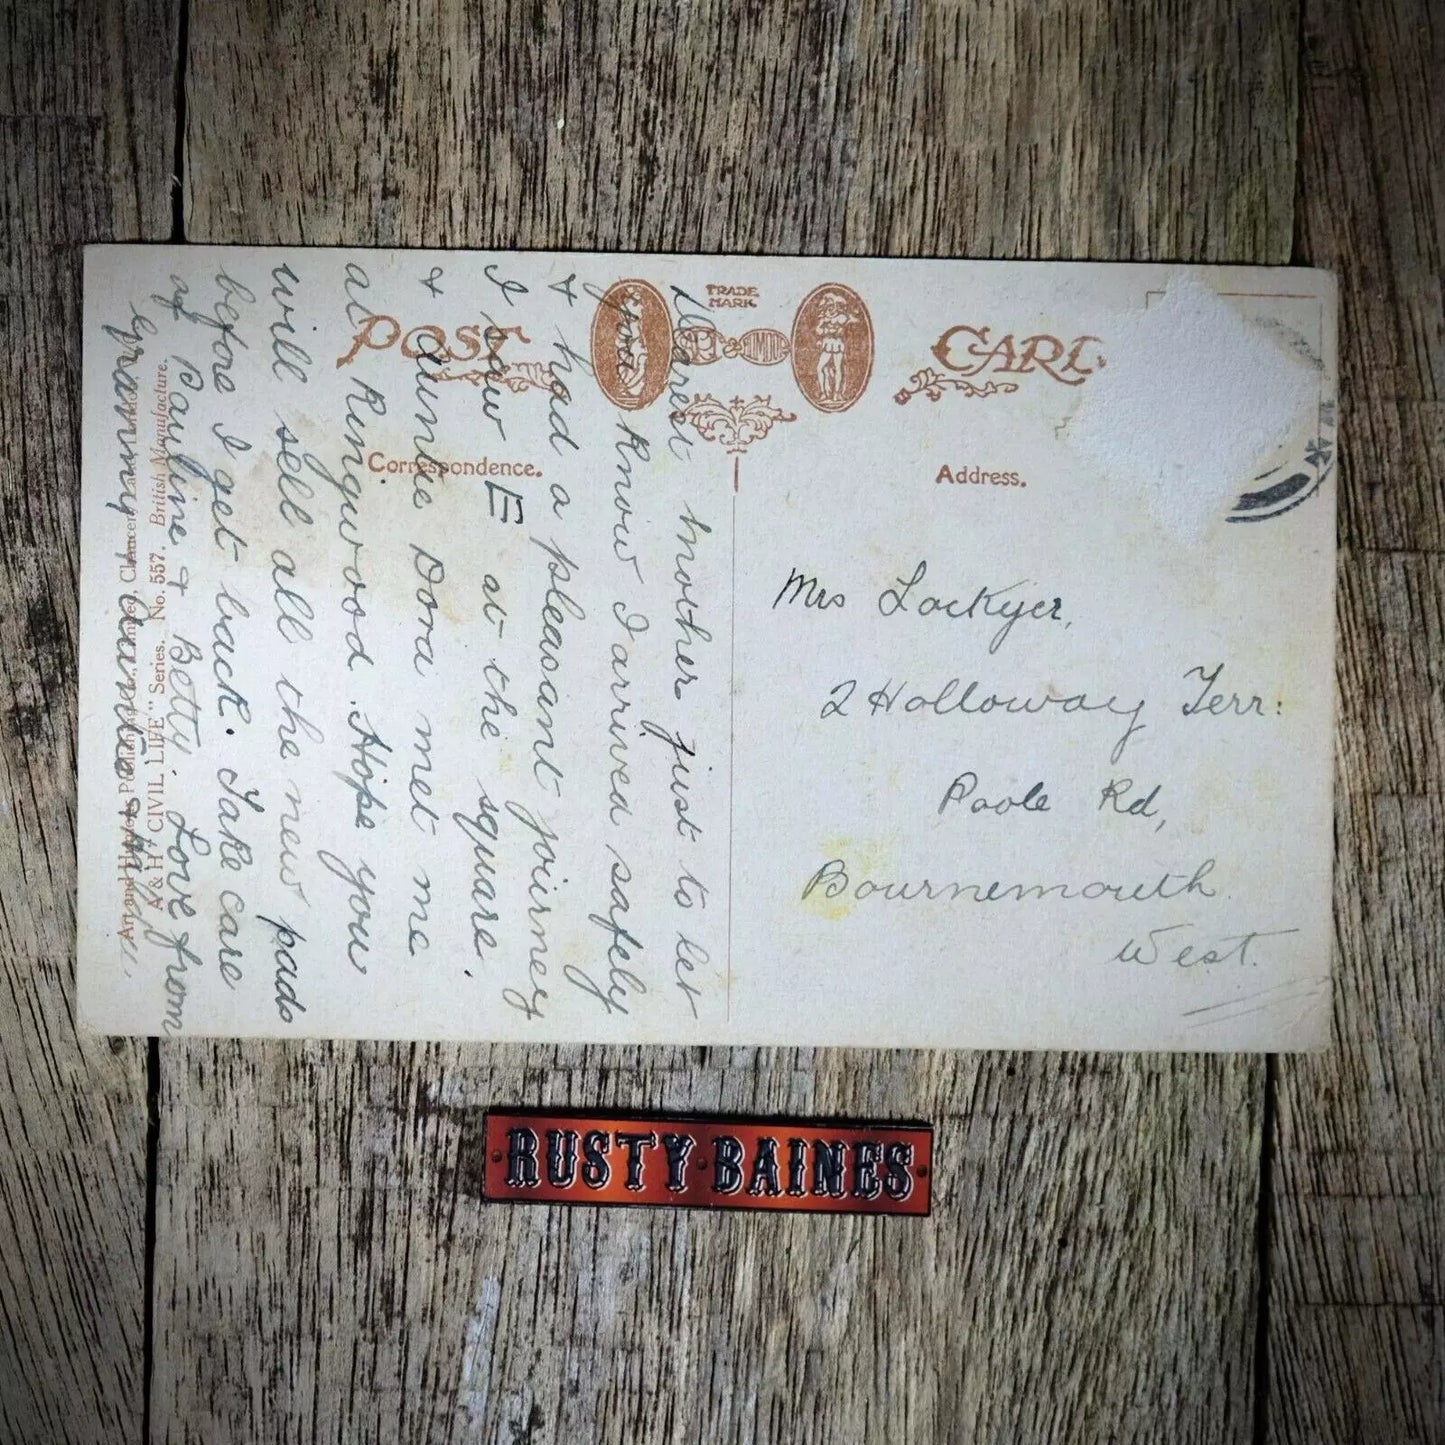 POST CARD
TRADE
MARK
A & H
Correspondence.
Address.
Dearest Mother just to let
you know I arrived safely
& had a pleasant journey
I saw E at the square.
& auntie Dora met me
at Ringwood. Hope you
will sell all the new pads
before I get back. Take care
of Pauline & Betty. Love from
Granny auntie
Mrs Lockyer,
2 Holloway Terr:
Poole Rd,
Bournemouth
West.
A & H "CIVIL LIFE" Series. No. 557. British Manufacture.
RUSTY BAINES